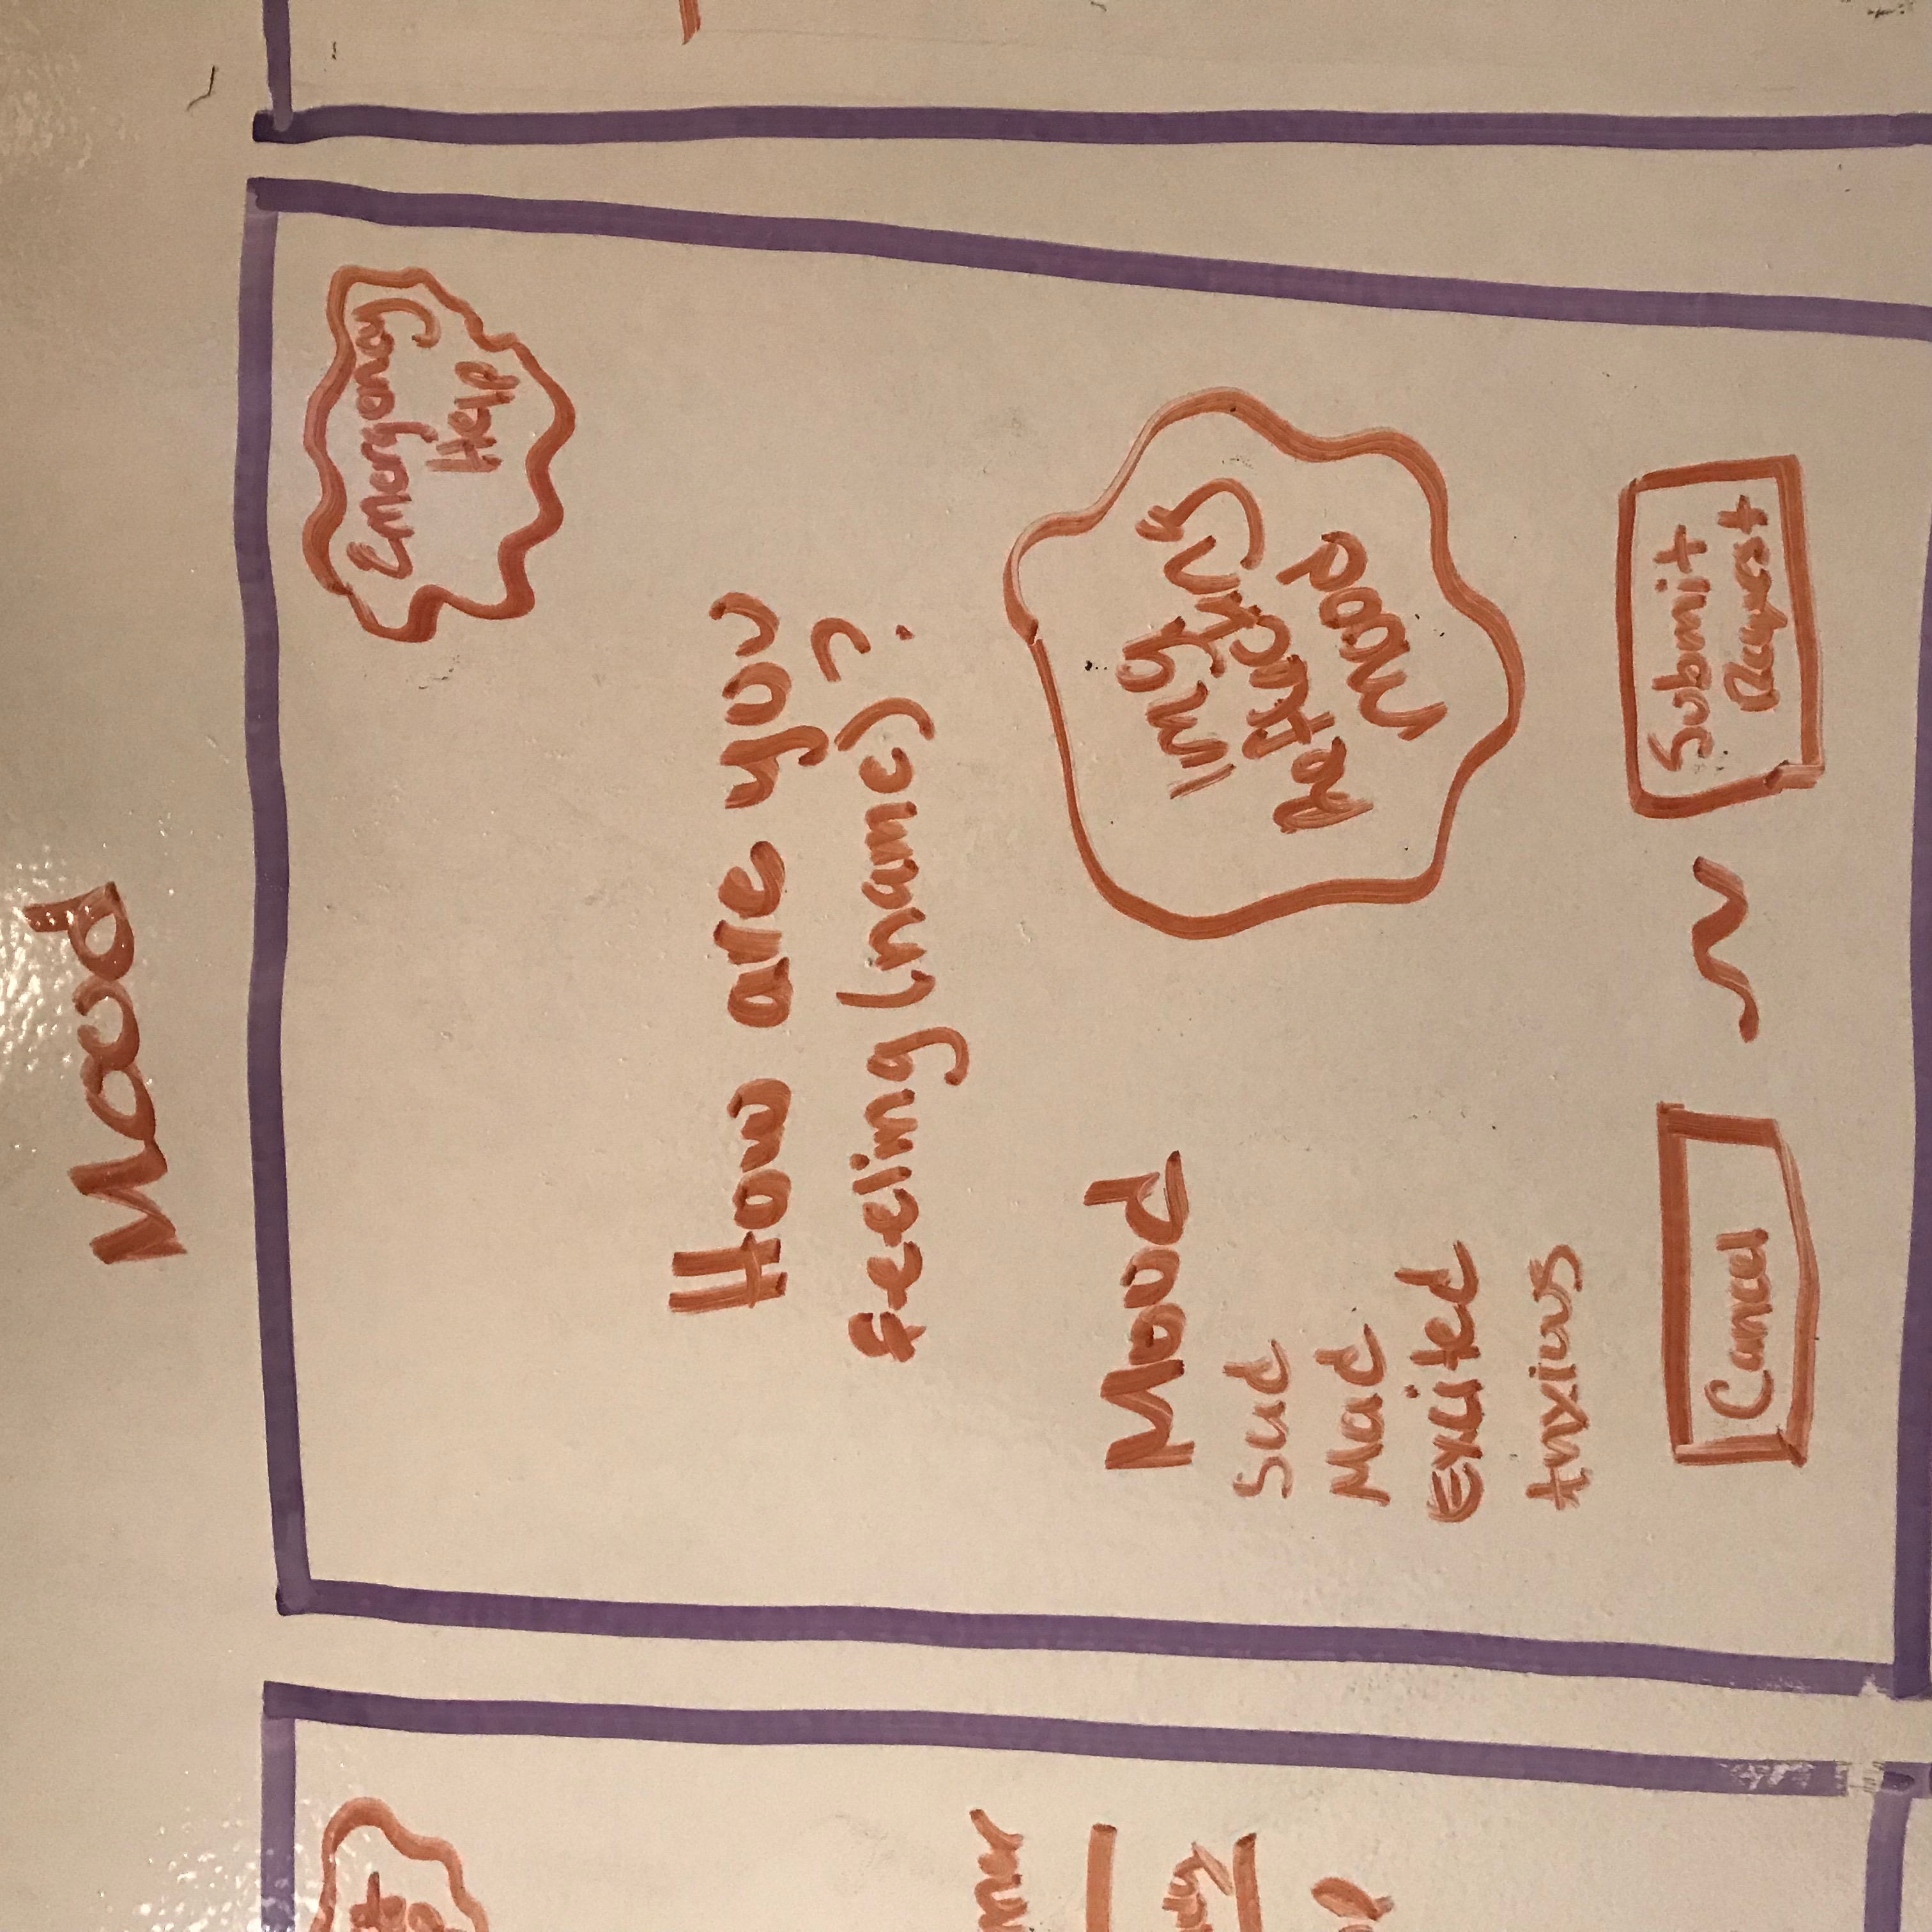 Mood
Emergency
Help
How are you
feeling (name)?
Mood
Sad
Mad
Excited
Anxious
Img
Reflecting
mood
Cancel
Submit
Request